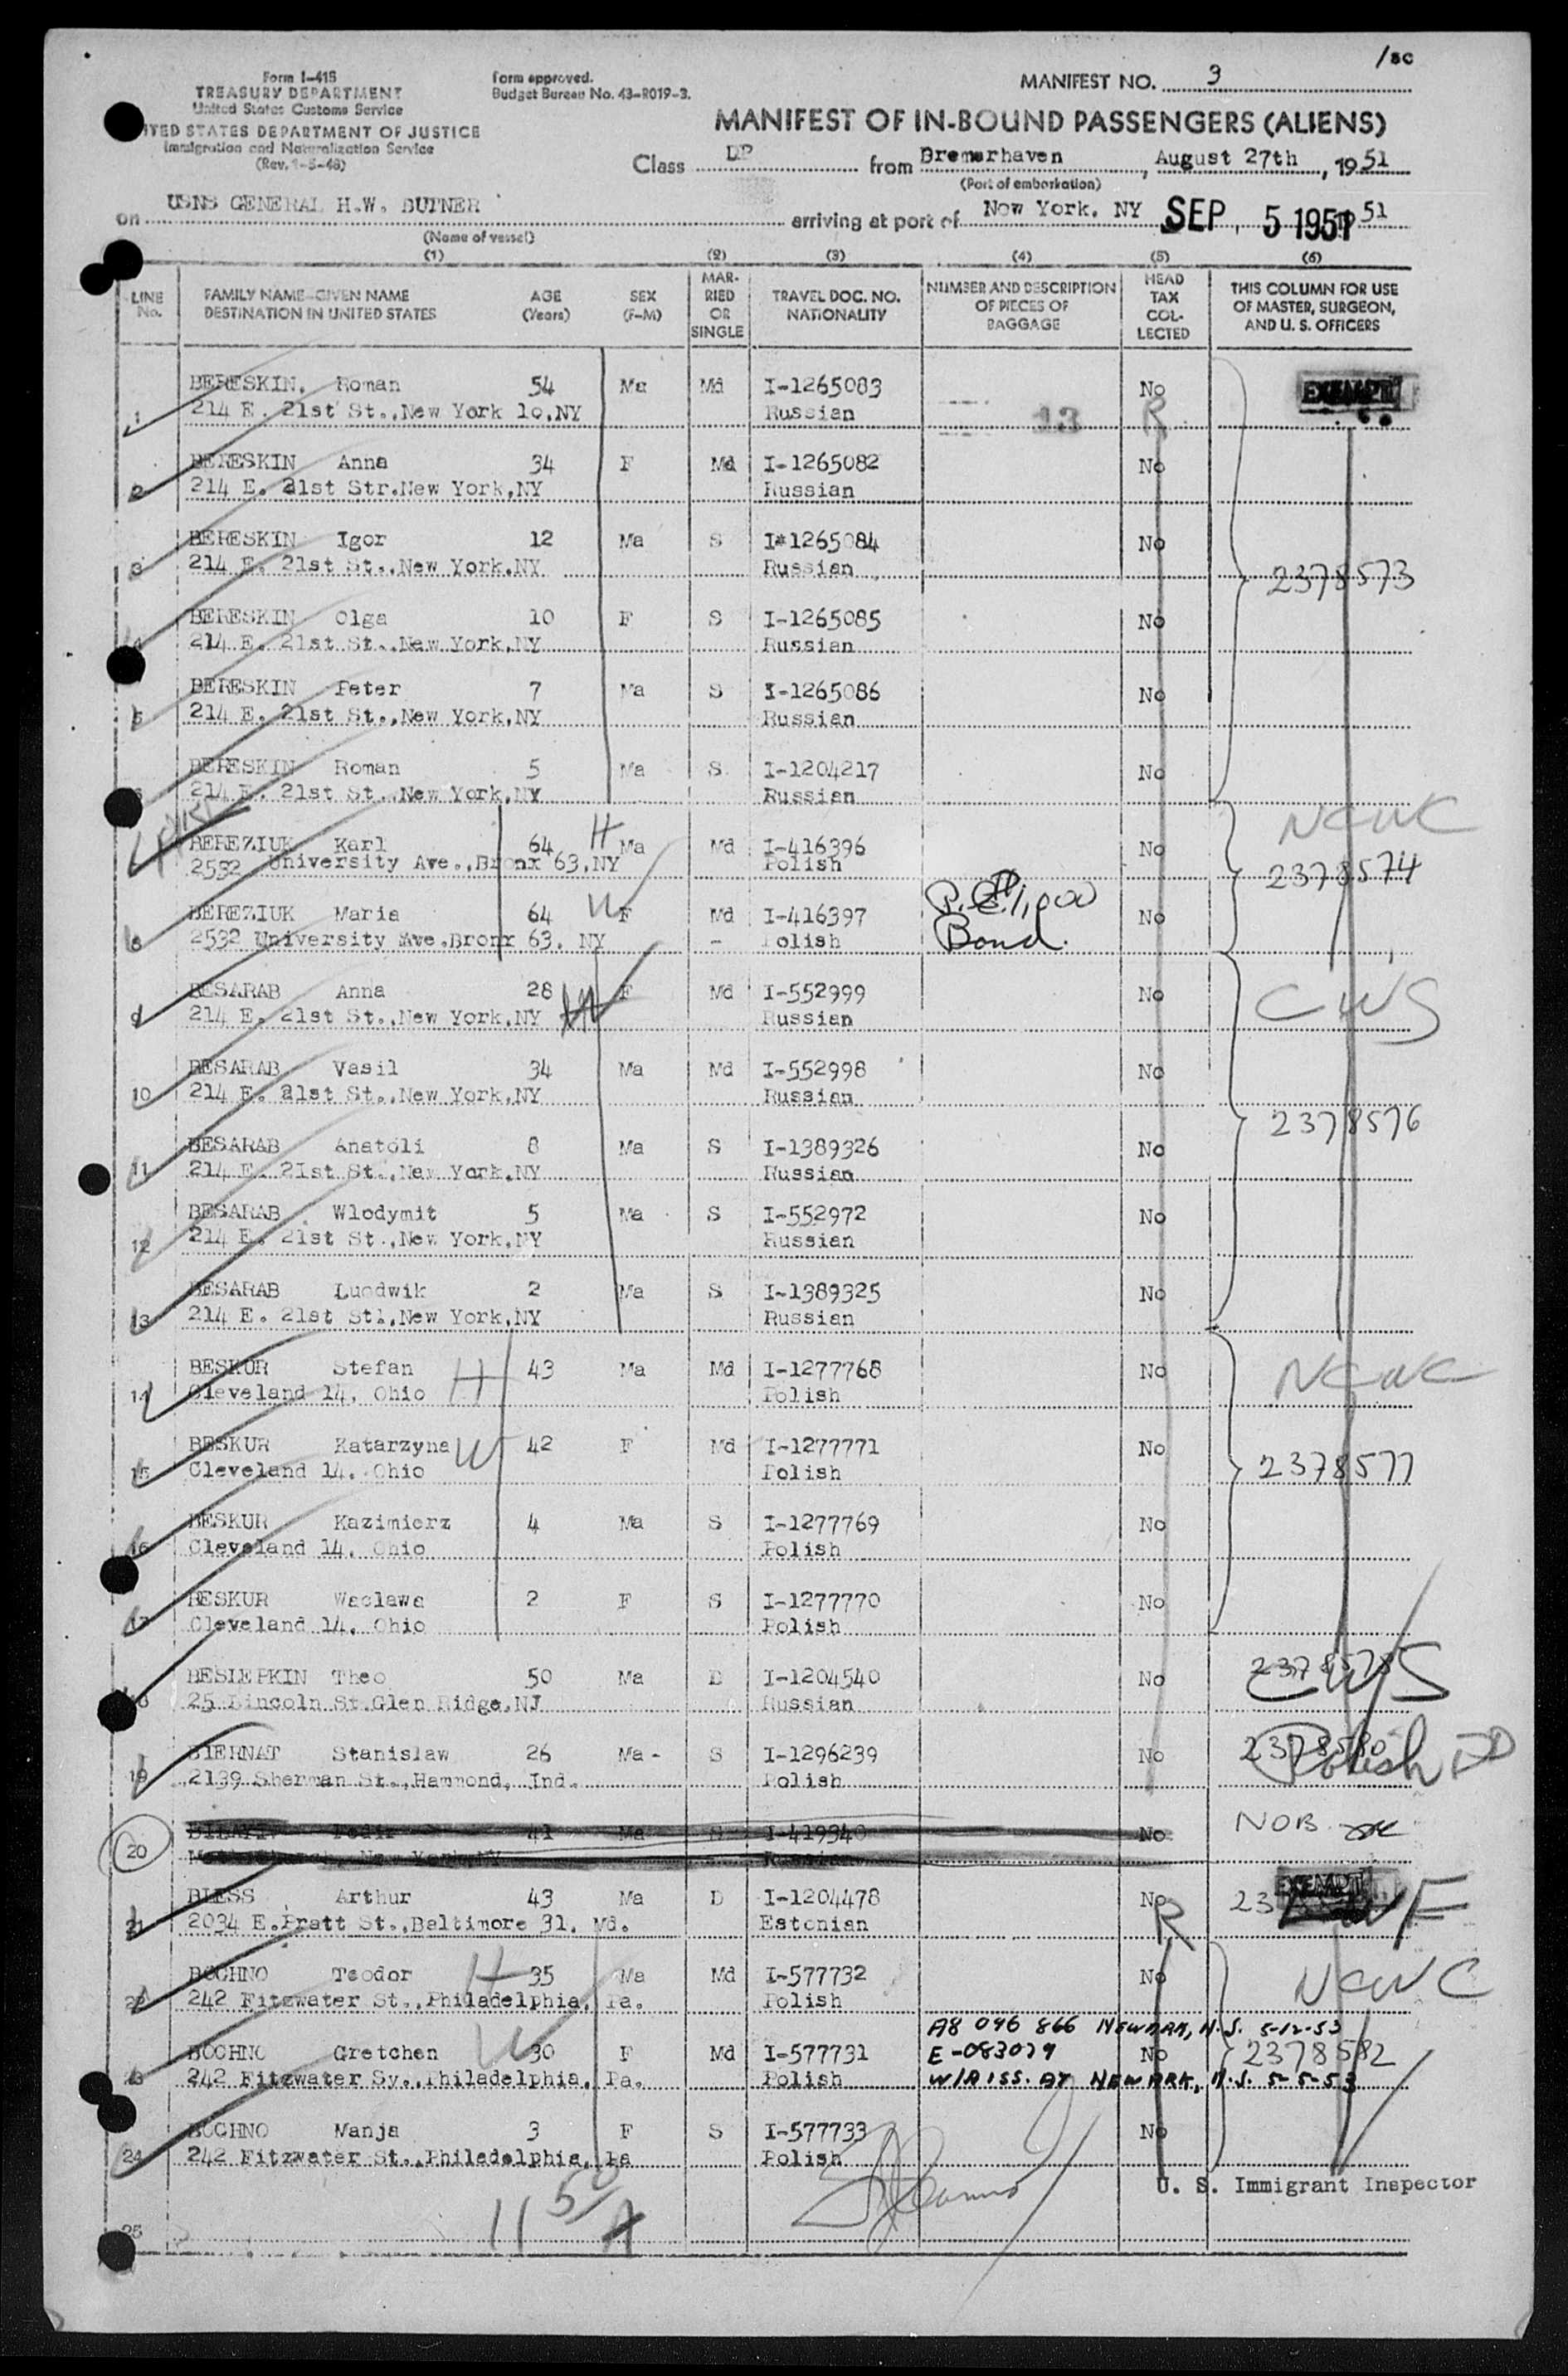 /sc
Form I-415
TREASURY DEPARTMENT
United States Customs Service
ITED STATES DEPARTMENT OF JUSTICE
Immigration and Naturalization Service
(Rev. 1-5-48)
form approved.
Budget Bureau No. 43-R019-3.
MANIFEST NO. 3
MANIFEST OF IN-BOUND PASSENGERS (ALIENS)
Class DP from Bremerhaven, August 27th, 1951
(Port of embarkation)
on USNS GENERAL H.W. BUTNER arriving at port of New York, NY SEP 5 1951 51
(Name of vessel)
(1) (2) (3) (4) (5) (6)
LINE No. FAMILY NAME-GIVEN NAME DESTINATION IN UNITED STATES AGE (Years) SEX (F-M) MARRIED OR SINGLE TRAVEL DOC. NO. NATIONALITY NUMBER AND DESCRIPTION OF PIECES OF BAGGAGE HEAD TAX COLLECTED THIS COLUMN FOR USE OF MASTER, SURGEON, AND U. S. OFFICERS
BERESKIN, Roman 54 Ma Md I-1265083 No EXEMPT
1 214 E. 21st St.,New York 10,NY Russian 13 R
BERESKIN Anna 34 F Md I-1265082 No
2 214 E. 21st Str.New York,NY Russian
BERESKIN Igor 12 Ma S I*1265084 No
3 214 E. 21st St.,New York,NY Russian 2378573
BERESKIN Olga 10 F S I-1265085 No
4 214 E. 21st St.,New York,NY Russian
BERESKIN Peter 7 Ma S I-1265086 No
5 214 E. 21st St.,New York,NY Russian
BERESKIN Roman 5 Ma S I-1204217 No
214 E. 21st St.,New York,NY Russian
BEREZIUK Karl 64 H Ma Md I-416396 No NCWC
2532 University Ave.,Bronx 63,NY Polish 2378574
BEREZIUK Maria 64 W F Md I-416397 P.C. $1,000 No
8 2532 University Ave.Bronx 63, NY Polish Bond.
BESARAB Anna 28 F Md I-552999 No CWS
9 214 E. 21st St.,New York,NY W Russian
BESARAB Vasil 34 Ma Md I-552998 No
10 214 E. 21st St.,New York,NY Russian 2378576
BESARAB Anatoli 8 Ma S I-1389326 No
11 214 E. 21st St.,New York,NY Russian
BESARAB Wlodymit 5 Ma S I-552972 No
12 214 E. 21st St.,New York,NY Russian
BESARAB Luodwik 2 Ma S I-1389325 No
13 214 E. 21st St.,New York,NY Russian
BESKUR Stefan H 43 Ma Md I-1277768 No NCWC
14 Cleveland 14, Ohio Polish
BESKUR Katarzyna W 42 F Md I-1277771 No
15 Cleveland 14, Ohio Polish 2378577
BESKUR Kazimierz 4 Ma S I-1277769 No
16 Cleveland 14, Ohio Polish
BESKUR Waclawa 2 F S I-1277770 No
17 Cleveland 14, Ohio Polish
BESLEPKIN Theo 50 Ma D I-1204540 No CWS
25 Lincoln St.Glen Ridge,NJ Russian
BIERNAT Stanislaw 26 Ma - S I-1296239 No 2378580
19 2139 Sherman St.,Hammond, Ind. Polish Polish DP
41 Ma S I-419340 No NOB
20 Russian
BLESS Arthur 43 Ma D I-1204478 No 23 EXEMPT
21 2034 E.Pratt St.,Baltimore 31, Md. Estonian R
BOCHNO Teodor H 35 Ma Md I-577732 No NCWC
22 242 Fitzwater St.,Philadelphia, Pa. Polish
A8 096 866 NEWARK, N.J. 5-12-53
BOCHNO Gretchen W 30 F Md I-577731 E-083079 No 2378582
23 242 Fitzwater Sy.,Philadelphia, Pa. Polish W/A ISS. AT NEWARK, N.J. 5-5-53
BOCHNO Manja 3 F S I-577733 No
24 242 Fitzwater St.,Philadelphia, Pa Polish
U. S. Immigrant Inspector
25 11 50 A